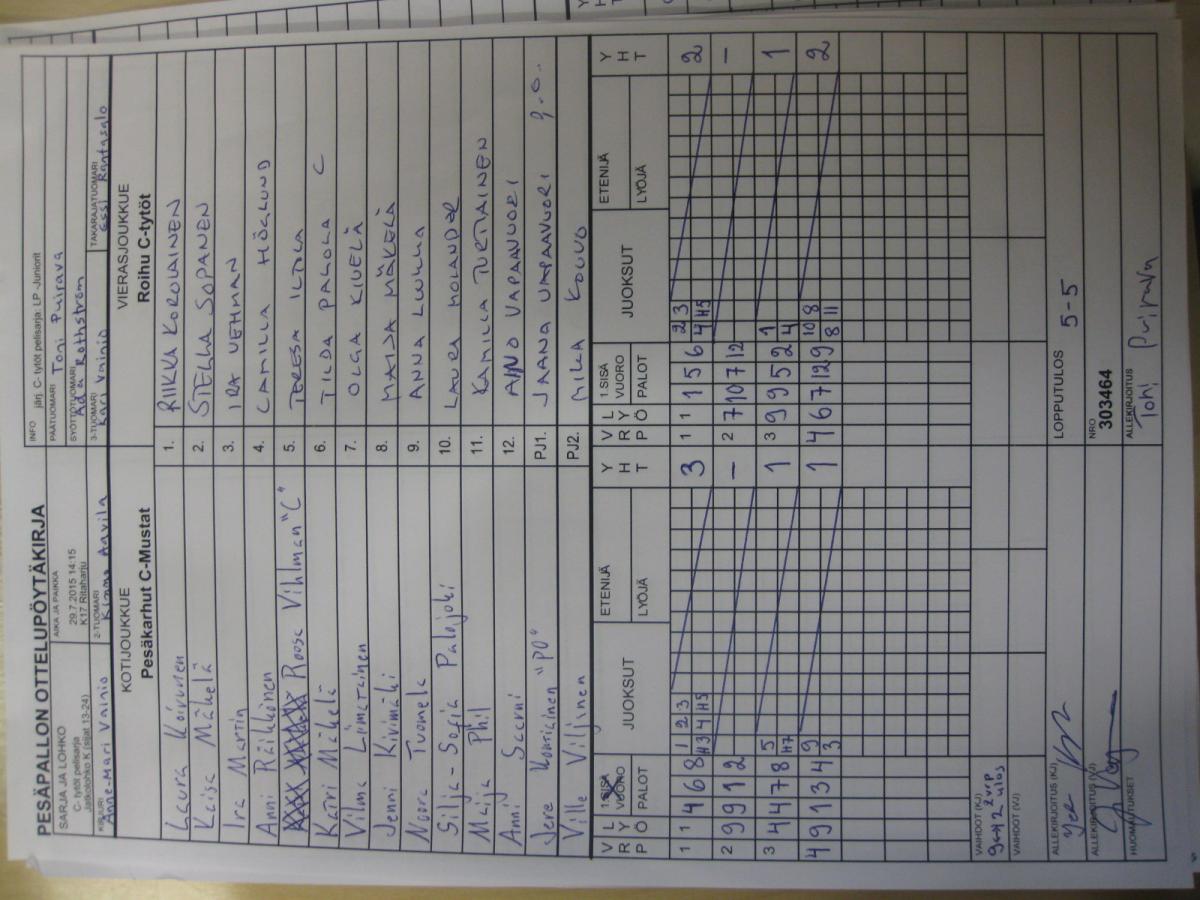 PESÄPALLON OTTELUPÖYTÄKIRJA
SARJA JA LOHKO
C- tytöt pelisarja
Jatkolohko K (sijat 13-24)
AIKA JA PAIKKA
29.7.2015 14:15
K17 Ritaharju
INFO järj. C- tytöt pelisarja: LP -Juniorit
PÄÄTUOMARI Toni Puirava
SYÖTTÖTUOMARI Ada Rothström
KIRJURI Anne-Mari Vainio
2-TUOMARI Kimmo Anvila
3-TUOMARI Kari Vainio
TAKARAJATUOMARI Essi Rantasalo
KOTIJOUKKUE
Pesäkarhut C-Mustat
VIERASJOUKKUE
Roihu C-tytöt
Laura Koivunen 1. RIIKKA KOROLAINEN
Kaisa Mäkelä 2. STELLA SOPANEN
Ira Martin 3. IRA VEHMAN
Anni Räikkönen 4. CAMILLA HÖGLUND
Roosa Vihlman "C" 5. TERESA ILOLA
Katri Mäkelä 6. TILDA PAKOLA C
Vilma Liimatainen 7. OLGA KIVELÄ
Jenni Kivimäki 8. MAIJA MÄKELÄ
Noora Tuomela 9. ANNA LUKKA
Silja-Sofia Palojoki 10. LAURA MOLANDER
Maija Phil 11. KAMILLA TURTIAINEN
Anni Saarni 12. AINO VAPAAVUORI
Jere "PO" PJ1. JAANA VAPAAVUORI
Ville Viljanen PJ2. MIKA KOUVO
V R P L Y Ö 1.SISÄ VUORO PALOT JUOKSUT ETENIJÄ LYÖJÄ Y H T V R P L Y Ö 1.SISÄ VUORO PALOT JUOKSUT ETENIJÄ LYÖJÄ Y H T
1 1 4 6 8 1 2 3 3 1 1 1 5 6 2 3 2
H3 4 H5 4 H5
2 9 9 1 2 – 2 7 10 7 12 –
3 4 4 7 8 5 1 3 9 9 5 2 1 1
H7 4
4 9 1 3 4 9 1 4 6 7 12 9 10 8 2
3 8 11
VAIHDOT (KJ)
VAIHDOT (VJ)
ALLEKIRJOITUS (KJ)
LOPPUTULOS 5-5
ALLEKIRJOITUS (VJ)
NRO
303464
HUOMAUTUKSET
ALLEKIRJOITUS Toni Puirava